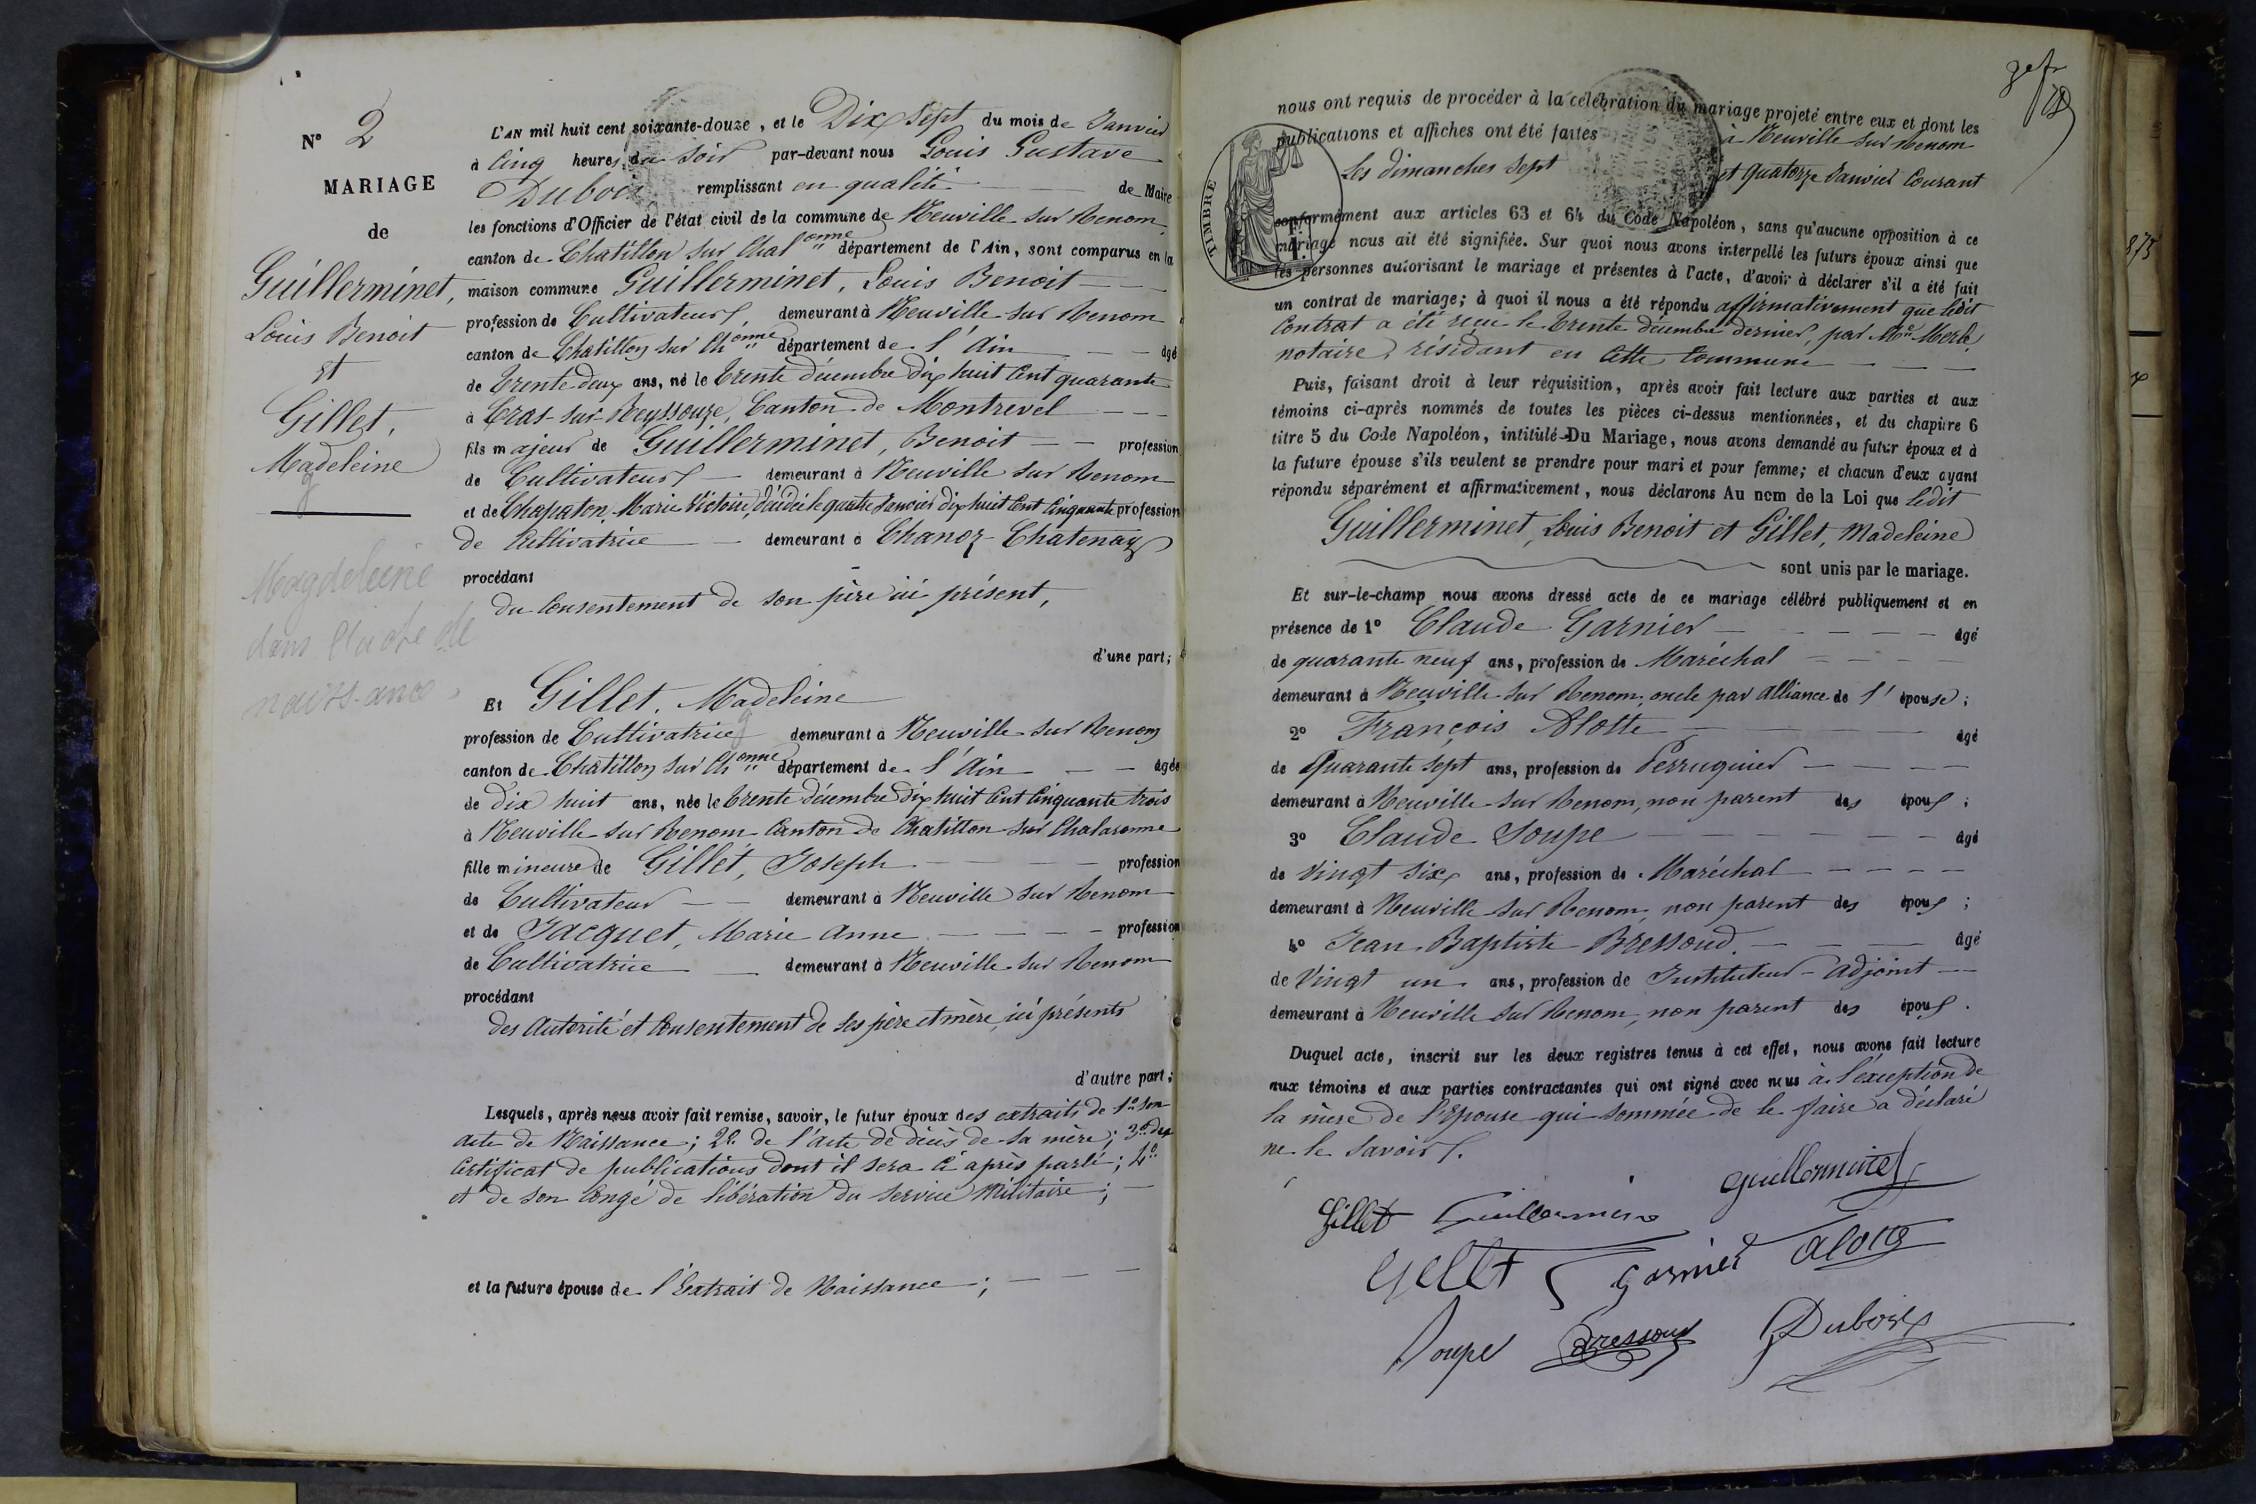 N° 2
MARIAGE
de
Guillerminet,
Louis Benoit
et
Gillet,
Madeleine
g
Magdeleine
dans l'acte de
naissance
L'AN mil huit cent soixante-douze, et le Dix sept du mois de Janvier
à Cinq heures du soir par-devant nous Louis Gustave
Dubois remplissant en qualité de Maire
les fonctions d'Officier de l'état civil de la commune de Neuville sur Renom,
canton de Chatillon sur Chalonne département de l'Ain, sont comparus en la
maison commune Guillerminet, Louis Benoit
profession de Cultivateur, demeurant à Neuville sur Renom
canton de Chatillon sur Chonne département de l'Ain âgé
de Trente-deux ans, né le trente décembre dix huit cent quarante
à Cras-sur Reyssouze, Canton de Montrevel
fils majeur de Guillerminet, Benoit profession
de Cultivateur demeurant à Neuville sur Renom
et de Chapaton, Marie Victoire, décédée le quatre Janvier dix huit cent cinquante profession
de Cultivatrice demeurant à Chanoz-Chatenay
procédant
du consentement de son père ici présent,
d'une part;
Et Gillet, Madeleine
g
profession de Cultivatrice demeurant à Neuville sur Renom
canton de Chatillon sur Chonne département de l'Ain âgée
de dix huit ans, née le trente décembre dix huit cent cinquante trois
à Neuville sur Renom Canton de Chatillon sur Chalaronne
fille mineure de Gillet, Joseph profession
de Cultivateur demeurant à Neuville sur Renom
et de Jacquet, Marie Anne profession
de Cultivatrice demeurant à Neuville sur Renom
procédant
des Autorité et Consentement de ses père et mère, ici présents
d'autre part;
Lesquels, après nous avoir fait remise, savoir, le futur époux des extraits de 1° son
acte de Naissance; 2° de l'acte de décès de sa mère; 3° des
Certificat de publications dont il sera ci après parlé; 4°
et de son Congé de libération du service Militaire;
et la future épouse de l'Extrait de Naissance;
TIMBRE
nous ont requis de procéder à la célébration du mariage projeté entre eux et dont les
publications et affiches ont été faites à Neuville sur Renom
Les dimanches sept et quatorze Janvier Courant
conformément aux articles 63 et 64 du Code Napoléon, sans qu'aucune opposition à ce
mariage nous ait été signifiée. Sur quoi nous avons interpellé les futurs époux ainsi que
les personnes autorisant le mariage et présentes à l'acte, d'avoir à déclarer s'il a été fait
un contrat de mariage; à quoi il nous a été répondu affirmativement que ledit
Contrat a été reçu le trente décembre dernier, par Me Merle
notaire, résidant en Cette Commune
Puis, faisant droit à leur réquisition, après avoir fait lecture aux parties et aux
témoins ci-après nommés de toutes les pièces ci-dessus mentionnées, et du chapitre 6
titre 5 du Code Napoléon, intitulé Du Mariage, nous avons demandé au futur époux et à
la future épouse s'ils veulent se prendre pour mari et pour femme; et chacun d'eux ayant
répondu séparément et affirmativement, nous déclarons Au nom de la Loi que ledit
Guillerminet, Louis Benoit et Gillet, Madeleine
sont unis par le mariage.
Et sur-le-champ nous avons dressé acte de ce mariage célébré publiquement et en
présence de 1° Claude Garnier âgé
de quarante neuf ans, profession de Maréchal
demeurant à Neuville sur Renom, oncle par Alliance de l'épouse;
2° François Alotte âgé
de Quarante sept ans, profession de Perruquier
demeurant à Neuville sur Renom, non parent des époux;
3° Claude Soupe âgé
de Vingt six ans, profession de Maréchal
demeurant à Neuville sur Renom, non parent des époux;
4° Jean Baptiste Bressoud âgé
de Vingt un ans, profession de Instituteur-Adjoint
demeurant à Neuville sur Renom, non parent des époux.
Duquel acte, inscrit sur les deux registres tenus à cet effet, nous avons fait lecture
aux témoins et aux parties contractantes qui ont signé avec nous à l'exception de
la mère de l'épouse qui sommée de le faire a déclaré
ne le savoir.
Guillerminet
Gillet Guillermine
Gillet Garnier Alotte
Soupe Bressoud Dubois
875